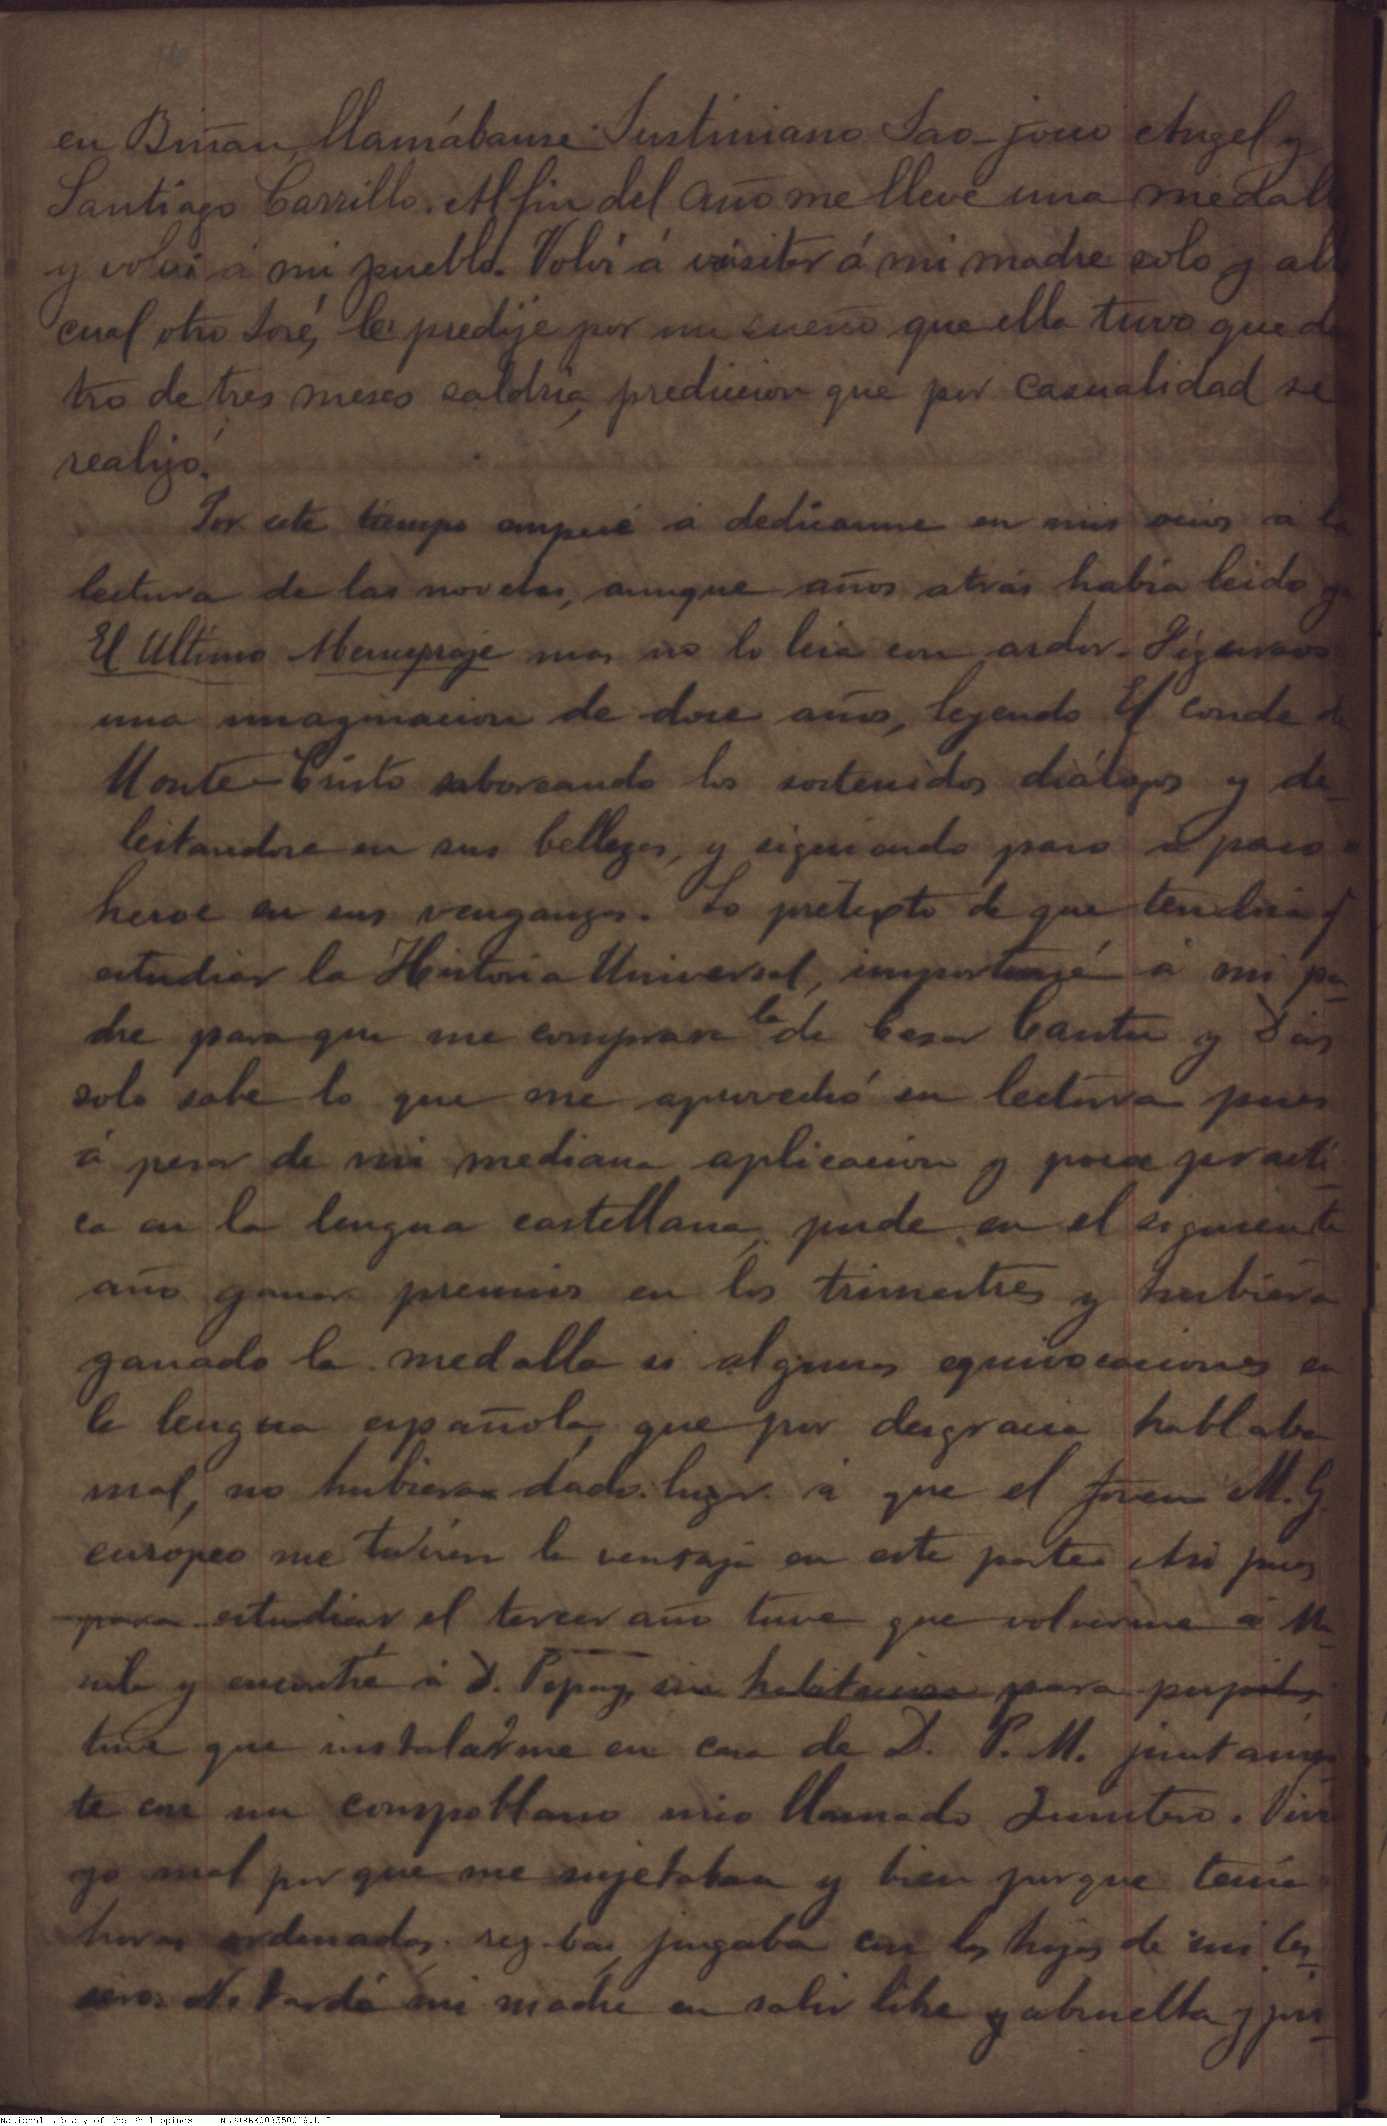 en Biñan, llamábanse Justiniano Sao-jono Angel y
Santiago Carrillo. Al fin del año me llevé una medalla
y volví á mi pueblo. Volví á visitar á mi madre solo y allí
cual otro José, le predije por un sueño que ella tuvo que de
tro de tres meses saldria, prediccion que por casualidad se
realizó.
Por este tiempo empecé á dedicarme en mis ocios á la
lectura de las novelas, aunque años atrás había leido ya
El Ultimo Abencerraje mas no lo leia con ardor. Figuraos
una imaginacion de doce años, leyendo El Conde de
Monte-Cristo saboreando los sostenidos diálogos y de-
leitandose en sus bellezas, y siguiendo paso á paso á
heroe en sus venganzas. So pretexto de que tendria q
estudiar la Historia Universal, importuné á mi pa-
dre para que me comprara la de Cesar Cantu y Dios
solo sabe lo que me aprovechó su lectura pues
á pesar de mi mediana aplicacion y poca practi-
ca en la lengua castellana, pude en el siguiente
año ganar premios en los trimestres y hubiera
ganado la medalla si algunas equivocaciones en
la lengua española, que por desgracia hablaba
mal, no hubieran dado lugar á que el joven M. G.
europeo me tuviera la ventaja en esta parte. Asi pues
para estudiar el tercer año tuve que volverme á Ma-
nila y encontré á D. Pepay, sin habitacion para pupilos
tuve que instalarme en casa de D. P. M. juntamen-
te con un compoblano mio llamado Quintero. Vivia
yo mal porque me sujetaban y bien porque tenia
horas ordenadas. rezaba, jugaba con los hijos de mi ca-
sero. No tardó mi madre en salir libre y absuelta y por-